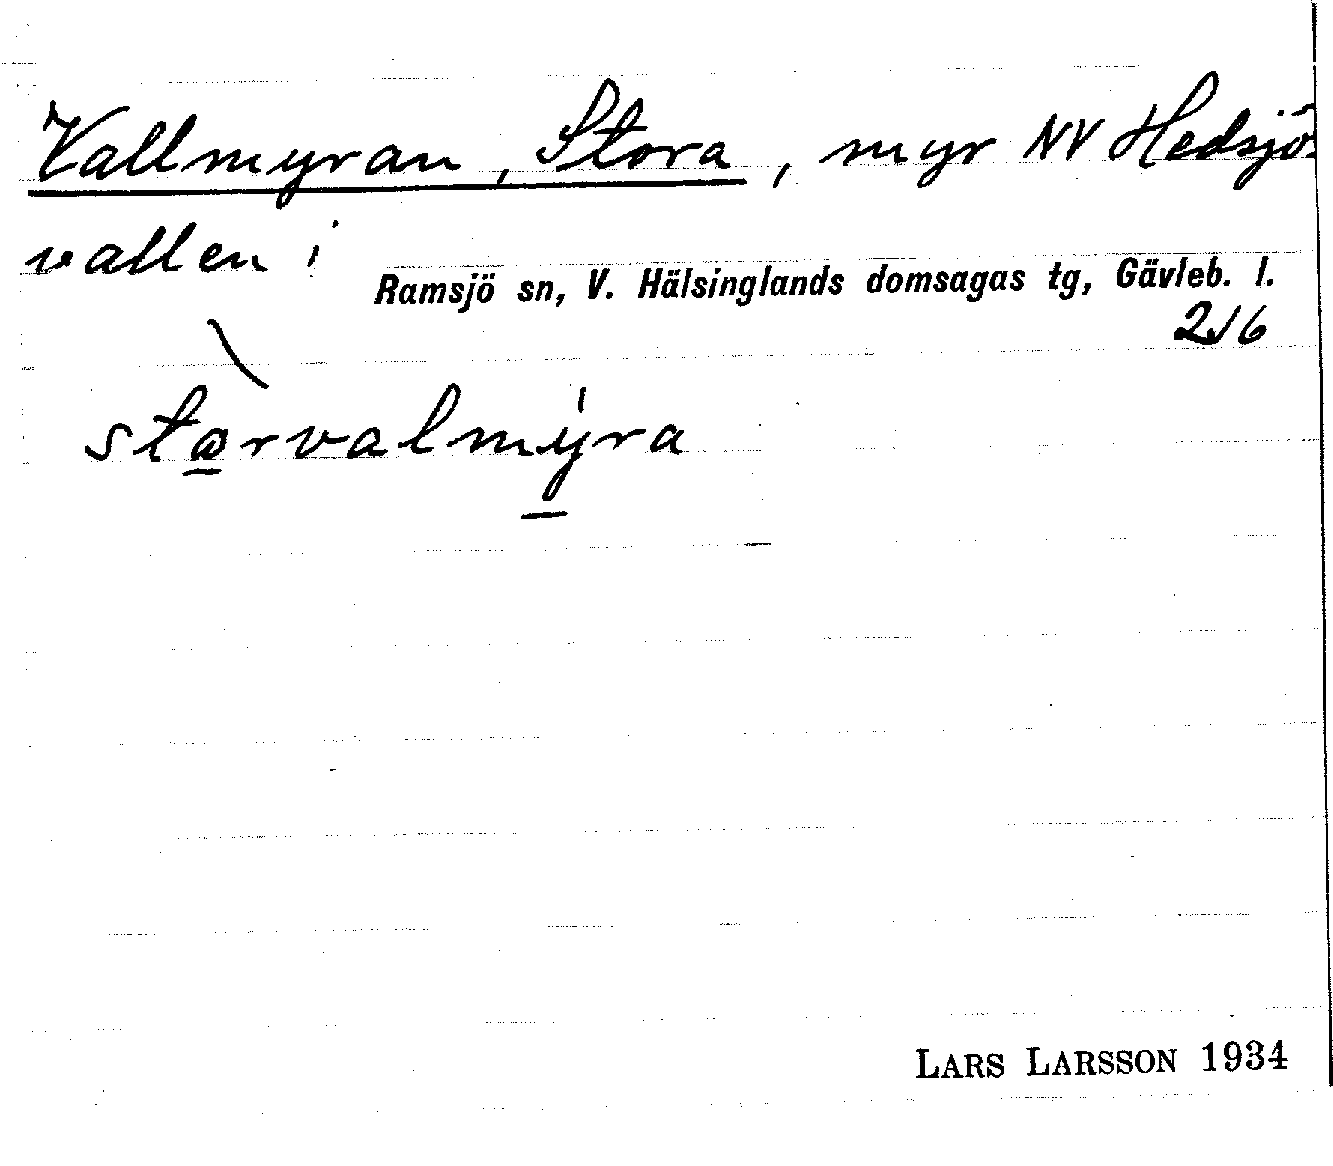 Vallmyran, Stora, myr NV Hedsjö-
vallen i
Ramsjö sn, V. Hälsinglands domsagas tg, Gävleb. l.
216
starvalmýra
LARS LARSSON 1934